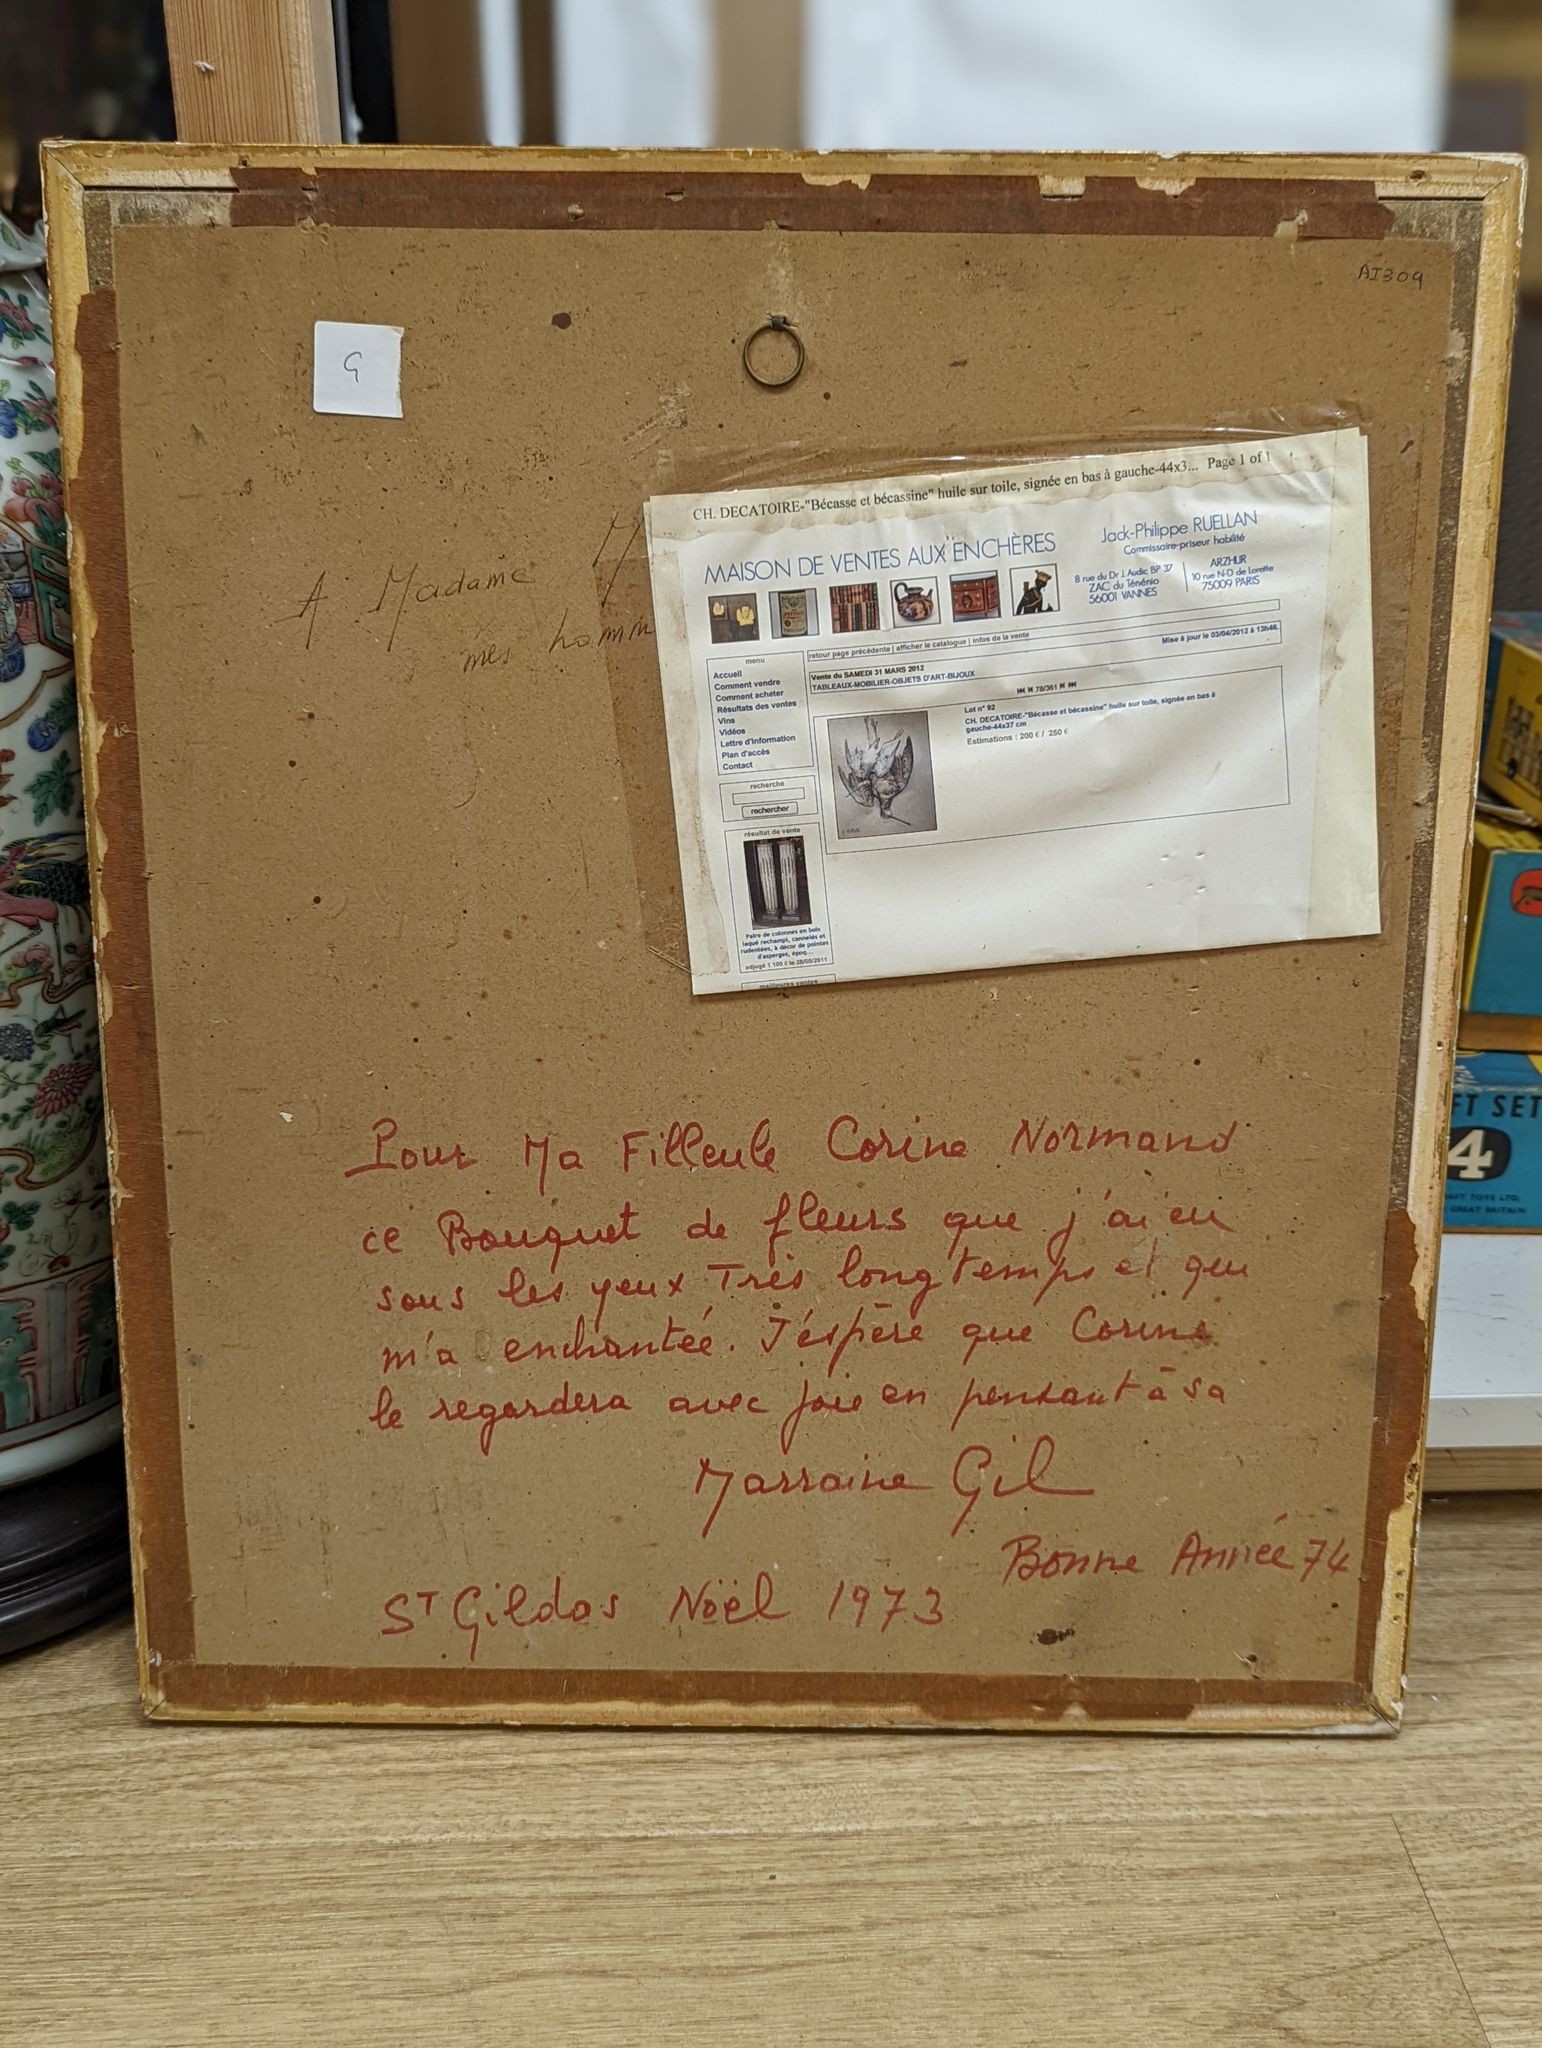 AI309
G
CH. DECATOIRE-"Bécasse et bécassine" huile sur toile, signée en bas à gauche-44x3... Page 1 of 1
MAISON DE VENTES AUX ENCHÈRES
Jack-Philippe RUELLAN
Commissaire-priseur habilité
8 rue du Dr J. Audic BP 37
ZAC du Ténénio
56001 VANNES
ARZHUR
10 rue N-D de Lorette
75009 PARIS
A Madame
mes homm
retour page précédente | afficher le catalogue | infos de la vente
Mise à jour le 03/04/2012 à 13h46.
Vente du SAMEDI 31 MARS 2012
TABLEAUX-MOBILIER-OBJETS D'ART-BIJOUX
78/361
Lot n° 92
CH. DECATOIRE-"Bécasse et bécassine" huile sur toile, signée en bas à
gauche-44x37 cm
Estimations : 200 € / 250 €
menu
Accueil
Comment vendre
Comment acheter
Résultats des ventes
Vins
Vidéos
Lettre d'information
Plan d'accès
Contact
recherche
rechercher
résultat de vente
Paire de colonnes en bois
laqué rechampi, cannelés et
rudentées, à décor de pointes
d'asperges, époq...
adjugé 1 100 € le 28/05/2011
meilleures ventes
Pour Ma Filleule Corine Normand
ce Bouquet de fleurs que j'ai eu
sous les yeux Très longtemps et qui
m'a enchantée. J'éspère que Corine
le regardera avec joie en pensant à sa
Marraine Gil
Bonne Année 74
ST Gildas Noël 1973
FT SET
4
AFT TOYS LTD.
GREAT BRITAIN